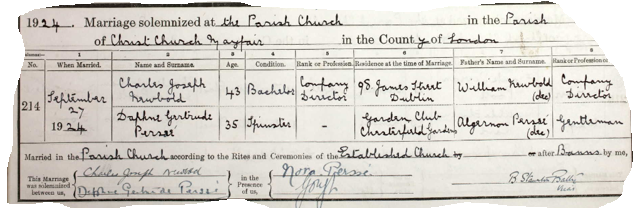 1924. Marriage solemnized at the Parish Church in the Parish
of Christ Church Mayfair in the County of London
1 2 3 4 5 6 7 8
No. When Married. Name and Surname. Age. Condition. Rank or Profession. Residence at the time of Marriage. Father's Name and Surname. Rank or Profession
214 September 27 1924 Charles Joseph Newbold 43 Bachelor Company Director 98 James Street Dublin William Newbold (dec) Company Director
Daphne Gertrude Persse 35 Spinster - Garden Club Chesterfield Gardens Algernon Persse (dec) Gentleman
Married in the Parish Church according to the Rites and Ceremonies of the Established Church after Banns by me,
This Marriage was solemnized between us, Charles Joseph Newbold in the Presence of us, Nora Persse B
Daphne Gertrude Persse